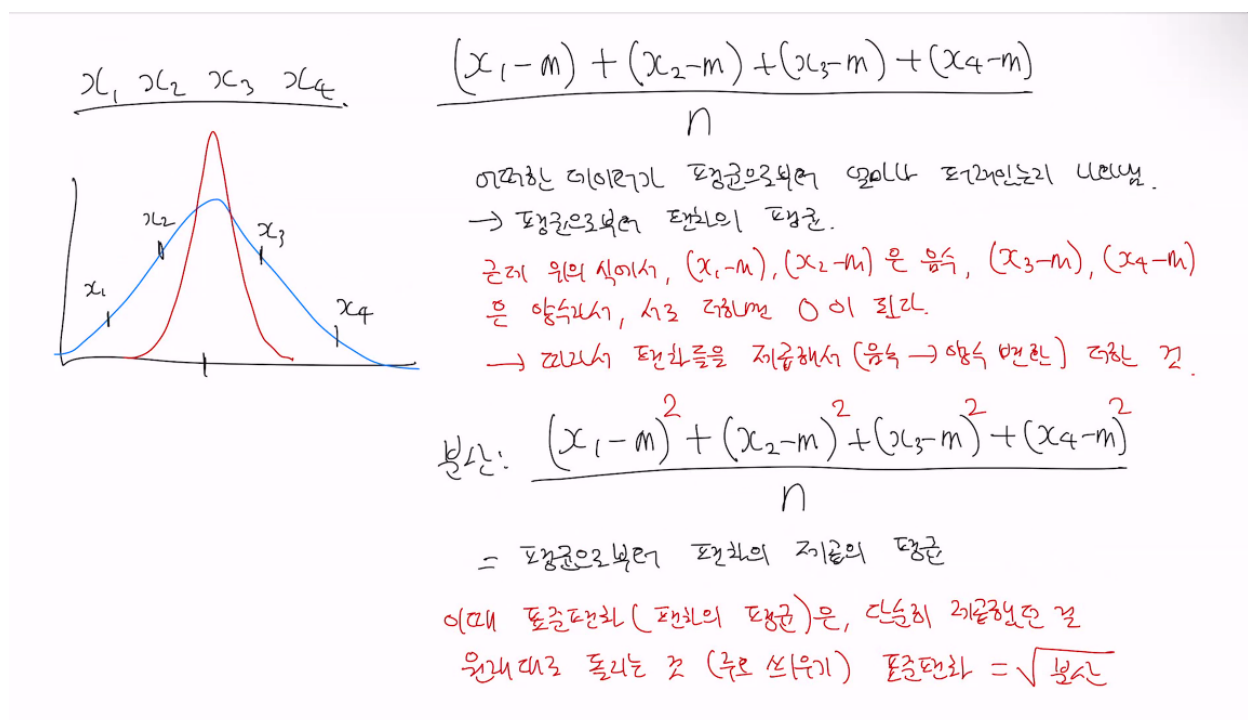 x₁ x₂ x₃ x₄.
x₁
x₂
x₃
x₄
(x₁-m) + (x₂-m) + (x₃-m) + (x₄-m)
n
어떠한 데이터가 평균으로부터 얼마나 퍼져있는지 나타냄.
→ 평균으로부터 편차의 평균.
근데 위의 식에서, (x₁-m), (x₂-m) 은 음수, (x₃-m), (x₄-m)
은 양수라서, 서로 더하면 0 이 된다.
→ 따라서 편차들을 제곱해서 (음수 → 양수 변환) 더한 것.
분산: (x₁-m)² + (x₂-m)² + (x₃-m)² + (x₄-m)²
n
= 평균으로부터 편차의 제곱의 평균
이때 표준편차 (편차의 평균)은, 단순히 제곱했던 걸
원래대로 돌리는 것 (루트 씌우기) 표준편차 = √분산